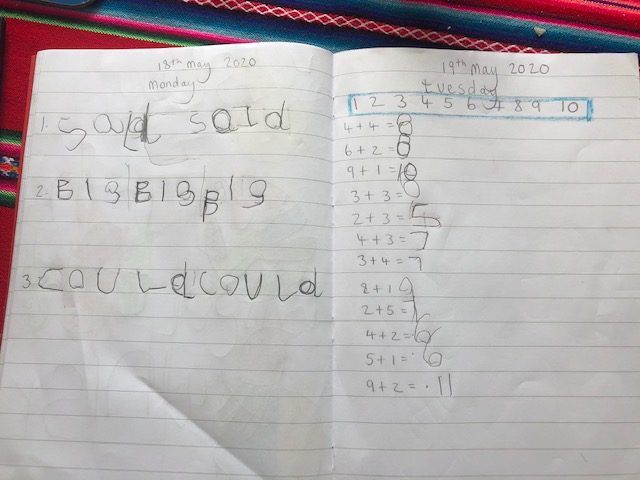 18th May 2020
Monday
1. said said
2. BIg BIg pIg
3. COULd COULd
19th May 2020
Tuesday
1 2 3 4 5 6 7 8 9 10
4 + 4 = 8
6 + 2 = 8
9 + 1 = 10
3 + 3 =
2 + 3 = 5
4 + 3 = 7
3 + 4 = 7
8 + 1 9
2 + 5 = 7
4 + 2 = 6
5 + 1 = 6
9 + 2 = 11